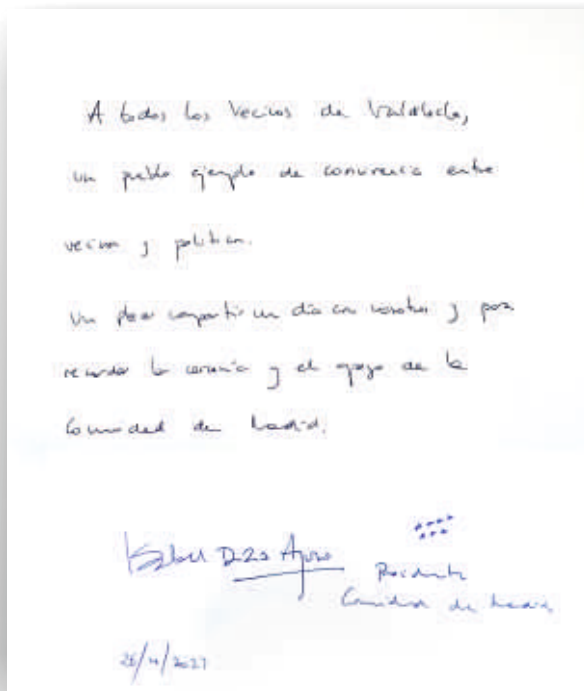 A todos los vecinos de Valdilecha,
un pueblo ejemplo de convivencia entre
vecinos y políticos.
Un placer compartir un día con vosotros y para
recordar la cercanía y el apoyo de la
Comunidad de Madrid.
Isabel Díaz Ayuso
Presidenta
Comunidad de Madrid